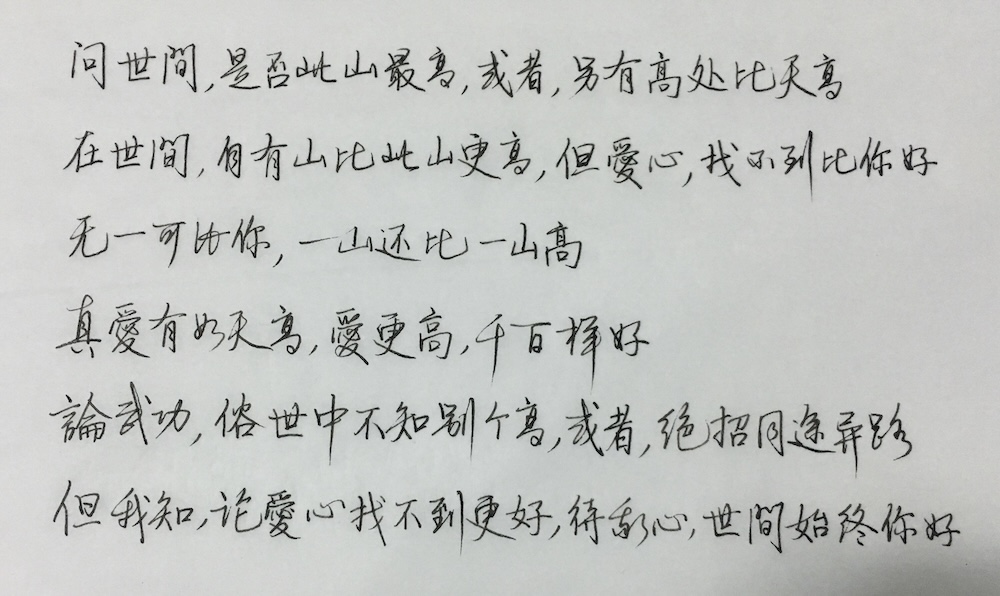 问世間,是否此山最高,或者,另有高处比天高
在世間,自有山比此山更高,但愛心,找不到比你好
无一可比你,一山还比一山高
真愛有如天高,愛更高,千百样好
論武功,俗世中不知别个高,或者,绝招同途异路
但我知,论愛心找不到更好,待我心,世間始终你好